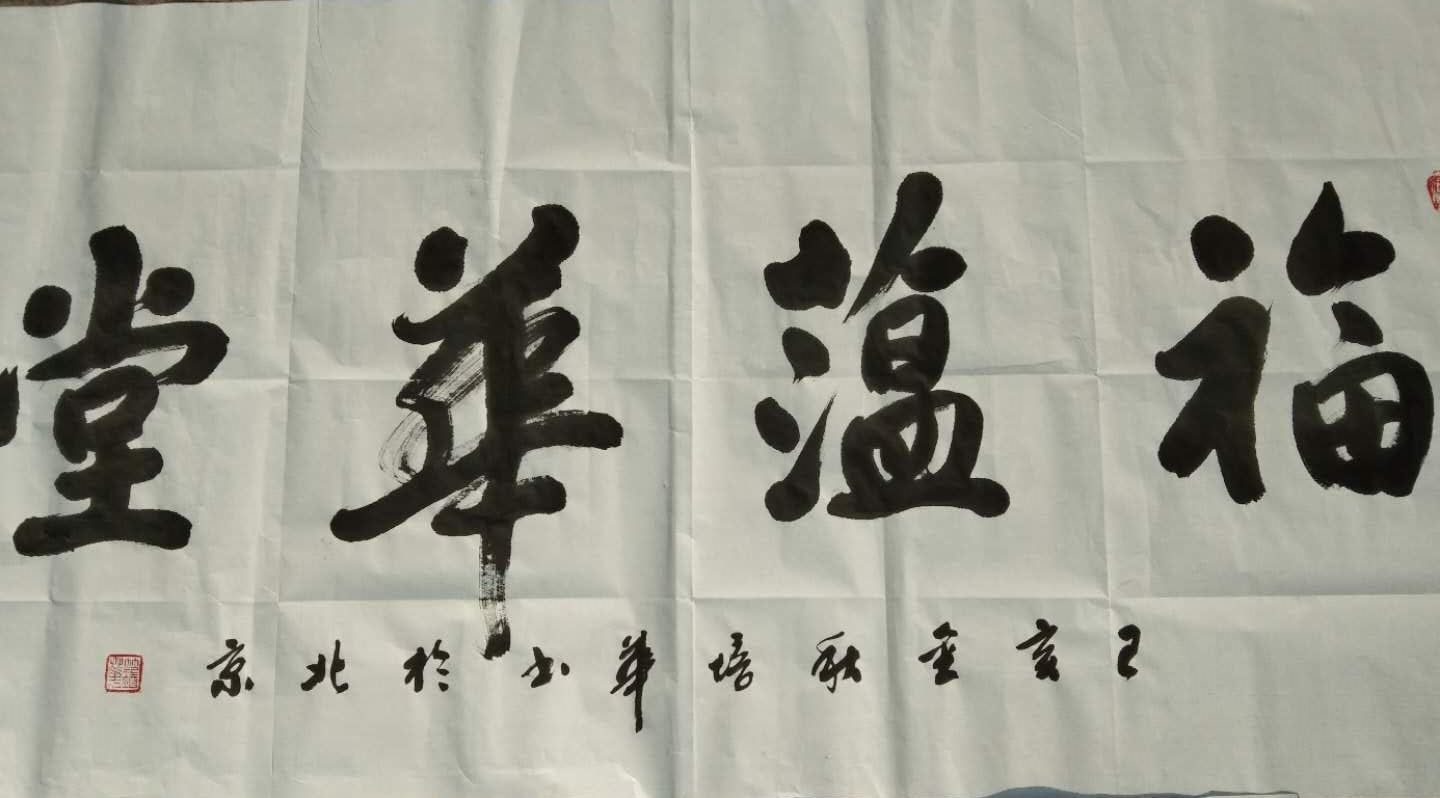 福蕰華堂
己亥金秋培華书於北京